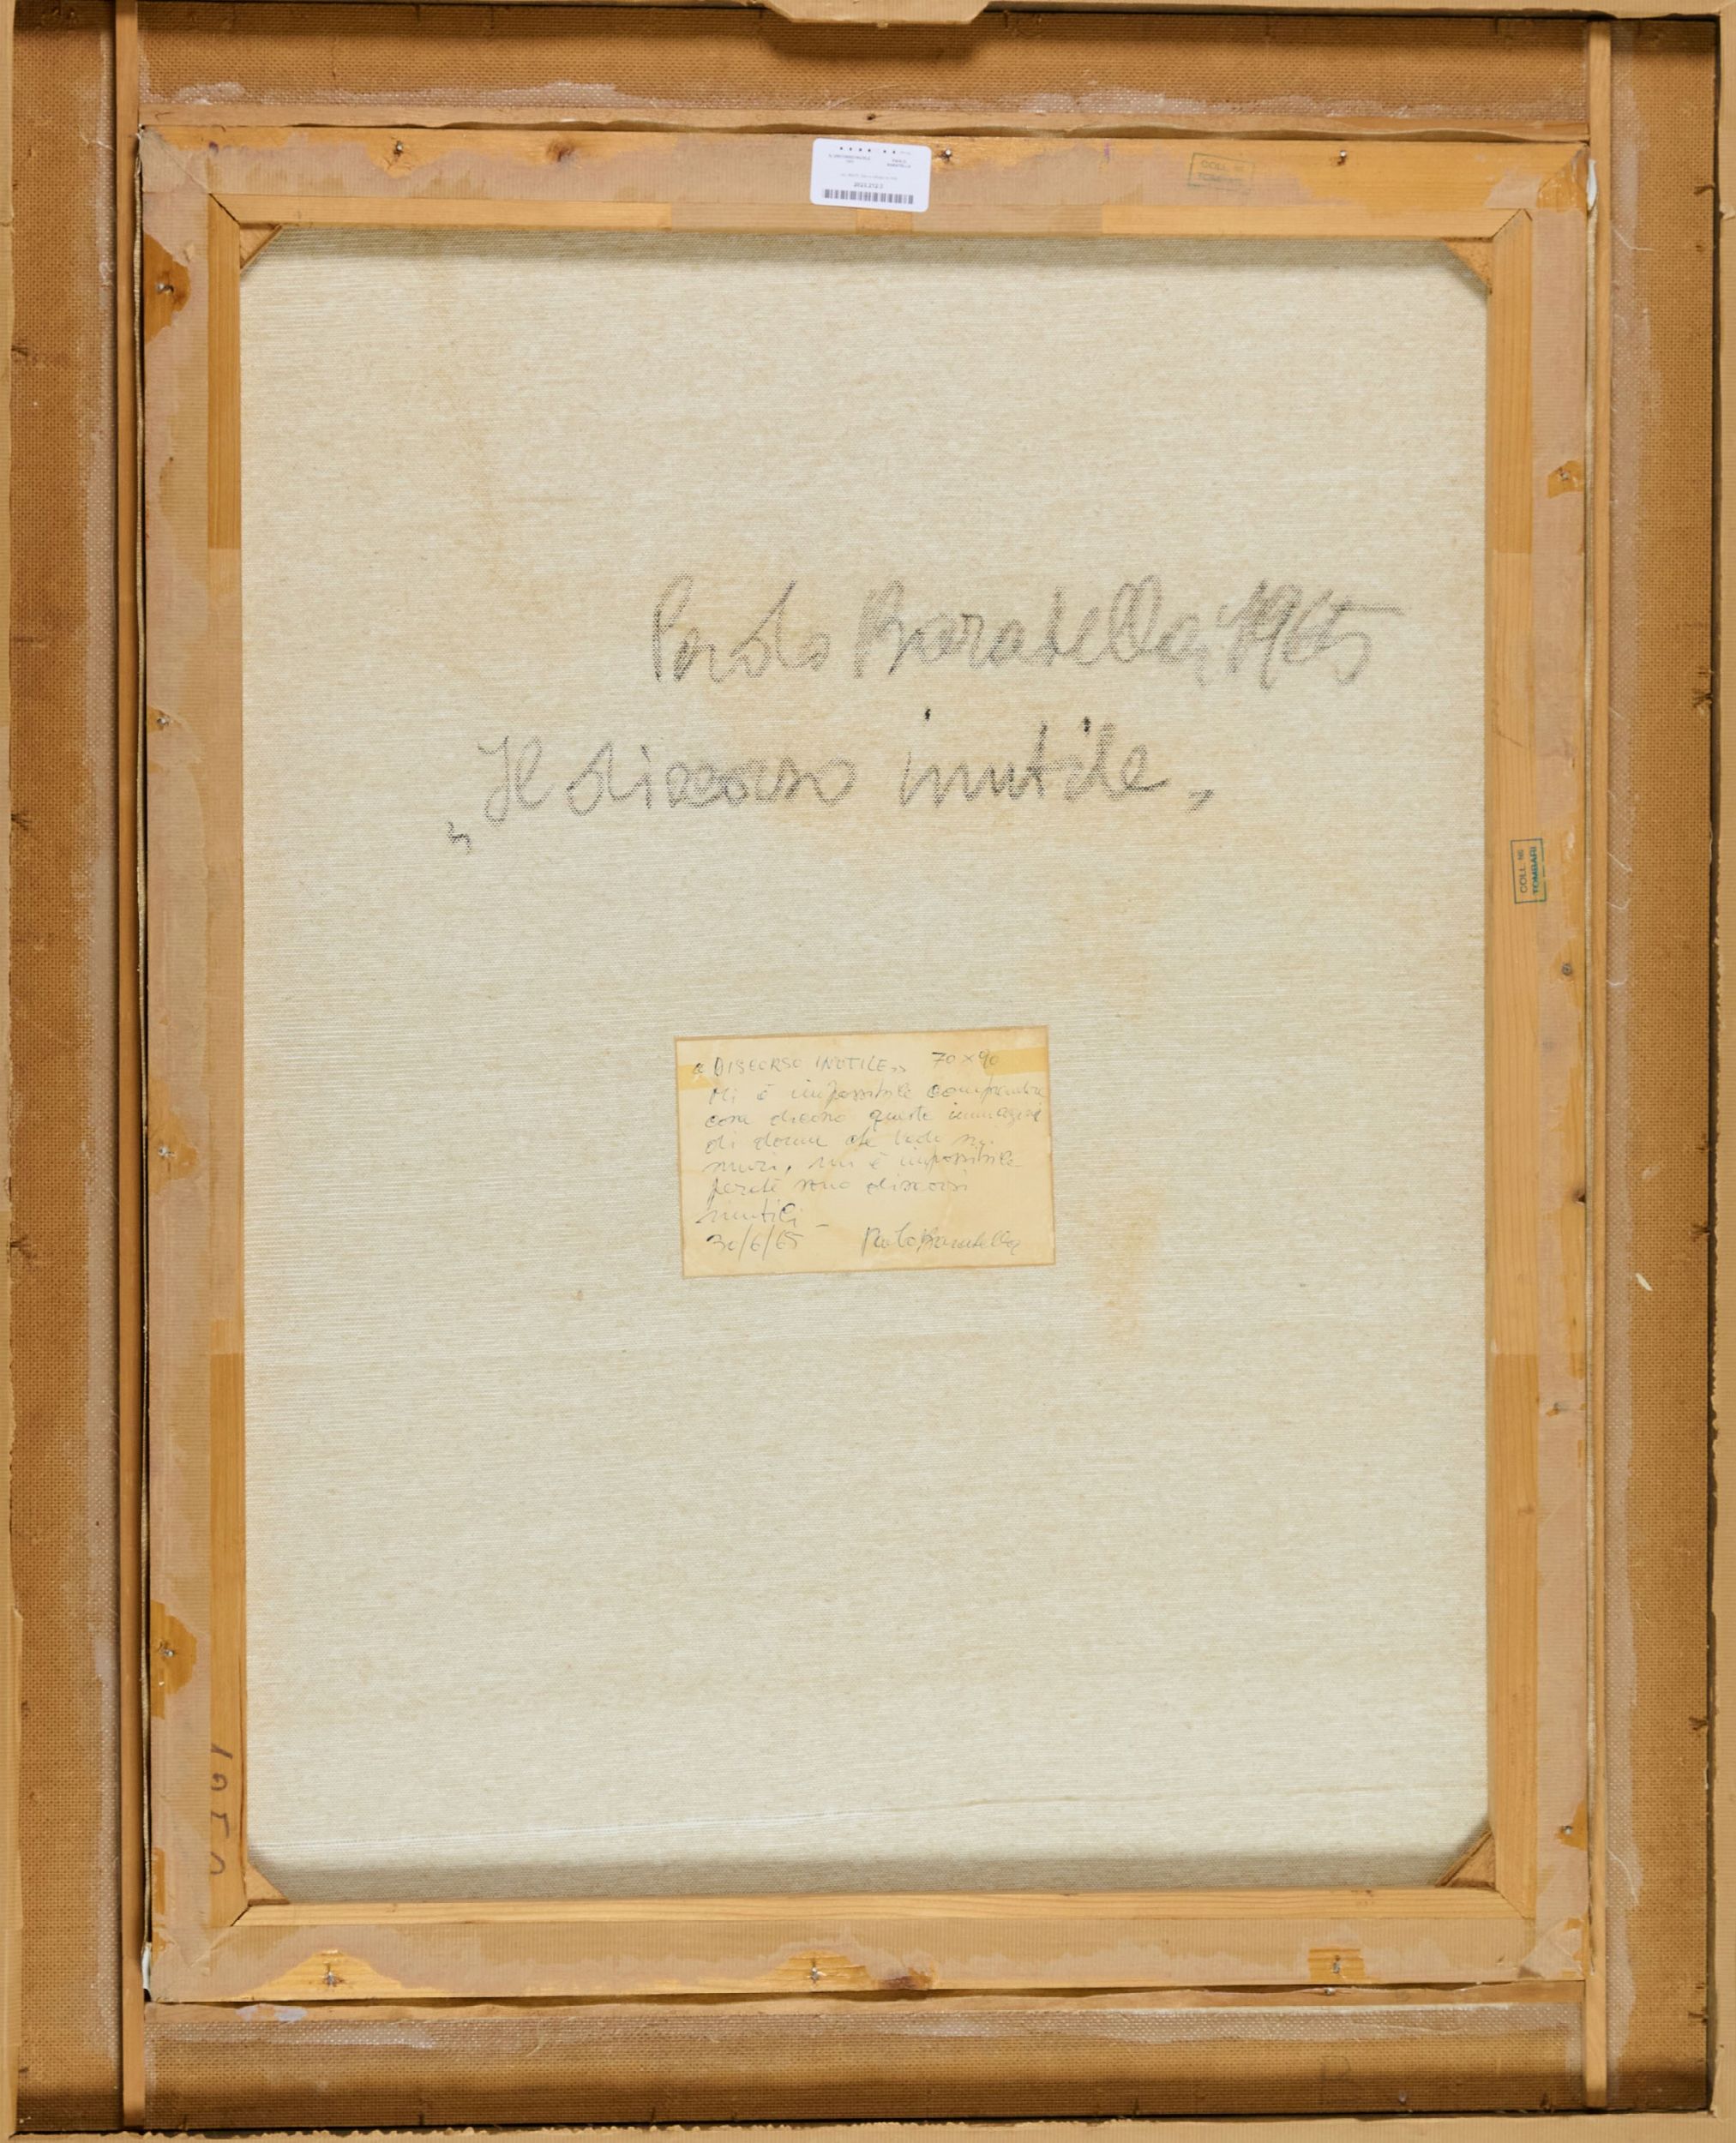 COLL. NS.
TOMBARI
Paolo Baratella, 1965
„Il discorso inutile„
COLL. NS.
TOMBARI
"DISCORSO INUTILE„ 70x90
Mi è impossibile comprendere
cosa dicono queste immagini
di donne che vedo sui
muri, mi è impossibile
perché sono discorsi
inutili_
30/6/65 Paolo Baratella